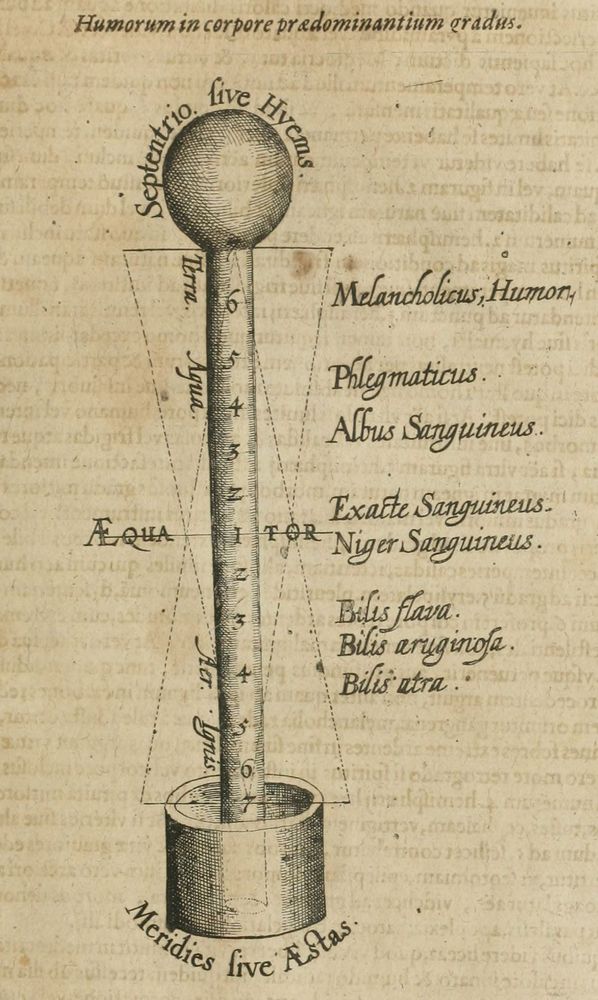 Humorum in corpore prædominantium gradus.
Septentrio. ſive Hyems.
Terra.
6
Melancholicus, Humor,
5
Aqua.
Phlegmaticus.
4
Albus Sanguineus.
3
2
Exacte Sanguineus.
ÆQUA 1 TOR
Niger Sanguineus.
2
3
Bilis flava.
Bilis æruginoſa.
Aer.
4
Bilis atra.
5
Ignis.
6
7
Meridies ſive Æſtas.